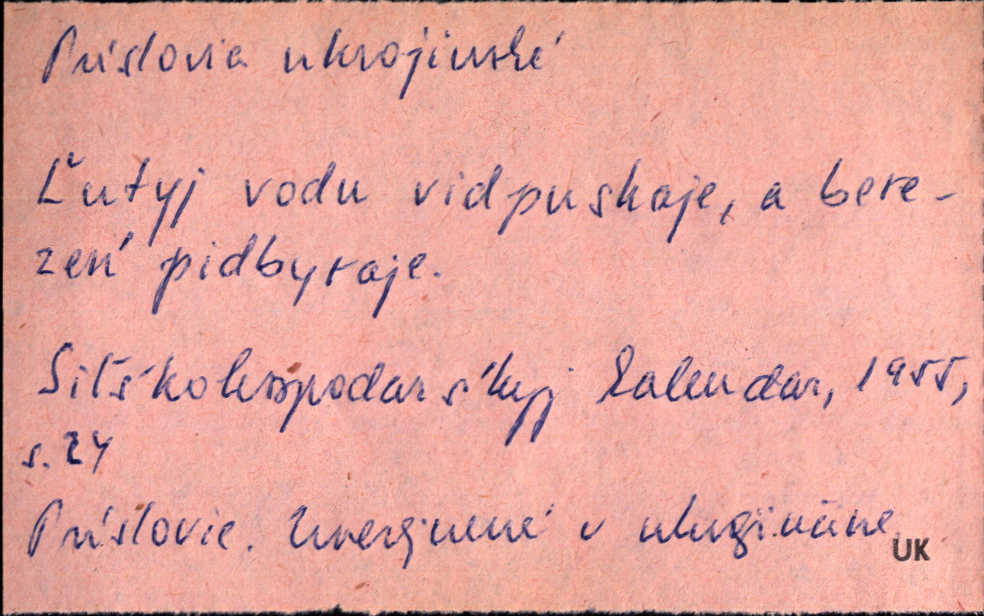 Príslovia ukrajinské
Ľutyj vodu vidpuskaje, a bere-
zeń pidbyraje.
Siľśkohospodarśkyj kalendar, 1955,
s. 24
Príslovie. Uverejnené v ukrajinčine.
UK